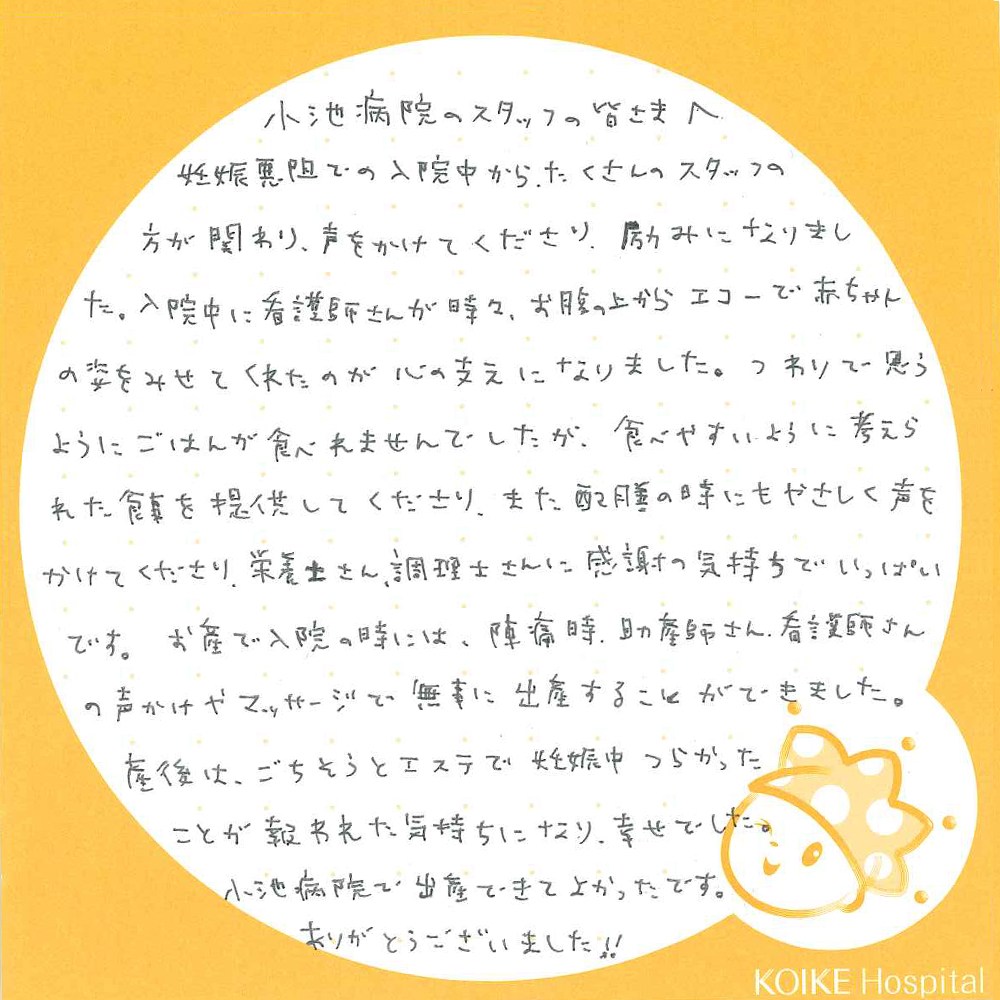 小池病院のスタッフの皆さまへ
妊娠悪阻での入院中から、たくさんのスタッフの
方が関わり、声をかけてくださり、励みになりまし
た。入院中に看護師さんが時々、お腹の上からエコーで赤ちゃん
の姿をみせてくれたのが心の支えになりました。つわりで思う
ようにごはんが食べれませんでしたが、食べやすいように考えら
れた食事を提供してくださり、また配膳の時にもやさしく声を
かけてくださり、栄養士さん、調理士さんに感謝の気持ちでいっぱい
です。お産で入院の時には、陣痛時、助産師さん、看護師さん
の声かけやマッサージで無事に出産することができました。
産後は、ごちそうとエステで妊娠中つらかった
ことが報われた気持ちになり、幸せでした。
小池病院で出産できてよかったです。
ありがとうございました!!
KOIKE Hospital